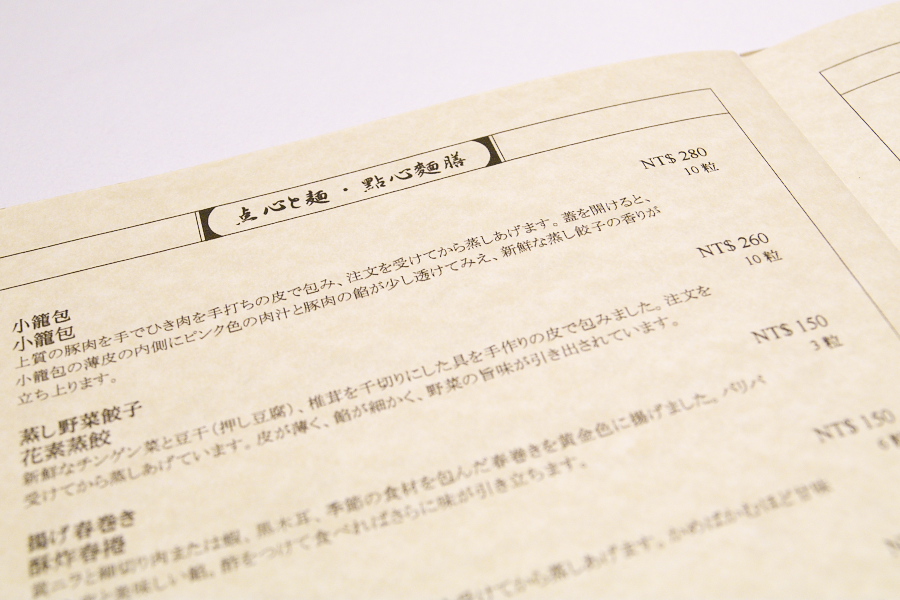 点心と麺・點心麵膳
NT$ 280
10 粒
小籠包
小籠包
上質の豚肉を手でひき肉を手打ちの皮で包み、注文を受けてから蒸しあげます。蓋を開けると、
小籠包の薄皮の内側にピンク色の肉汁と豚肉の餡が少し透けてみえ、新鮮な蒸し餃子の香りが
立ち上ります。
NT$ 260
10 粒
蒸し野菜餃子
花素蒸餃
新鮮なチンゲン菜と豆干(押し豆腐)、椎茸を千切りにした具を手作りの皮で包みました。注文を
受けてから蒸しあげています。皮が薄く、餡が細かく、野菜の旨味が引き出されています。
NT$ 150
3 粒
揚げ春巻き
酥炸春捲
黄ニラと細切り肉または蝦、黒木耳、季節の食材を包んだ春巻きを黄金色に揚げました。パリパ
美味しい餡。酢をつけて食べればさらに味が引き立ちます。
NT$ 150
を受けてから蒸しあげます。かめばかむほど甘味